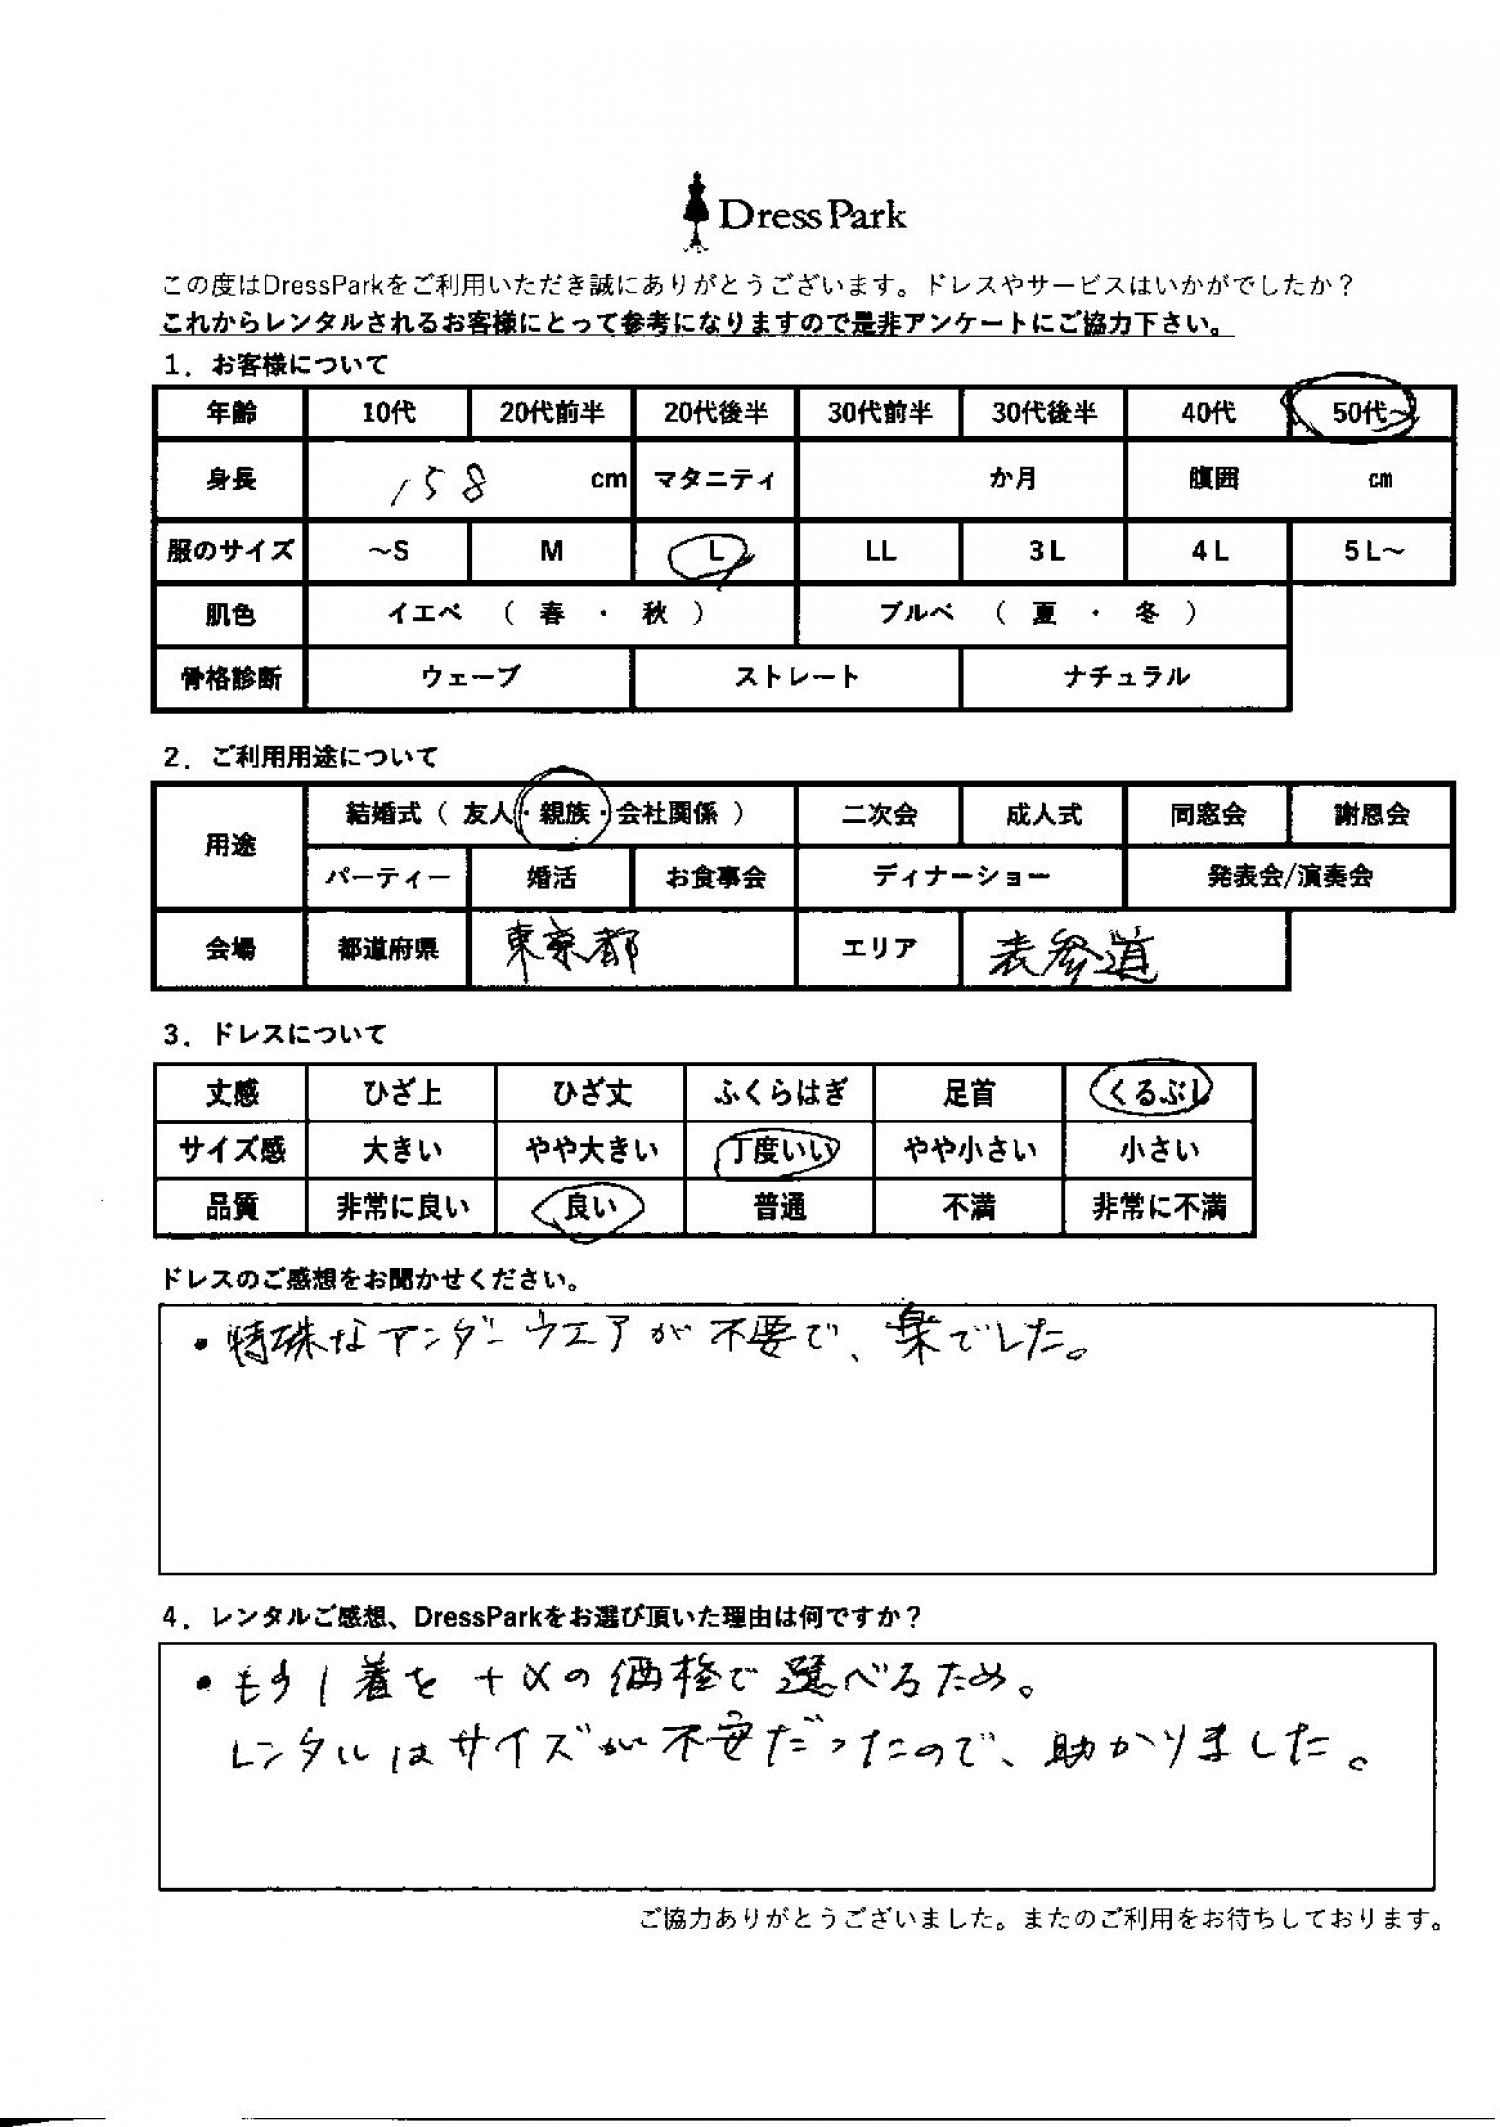 Dress Park
この度はDressParkをご利用いただき誠にありがとうございます。ドレスやサービスはいかがでしたか？
これからレンタルされるお客様にとって参考になりますので是非アンケートにご協力下さい。
1．お客様について
年齢 10代 20代前半 20代後半 30代前半 30代後半 40代 50代~
身長 158 cm マタニティ か月 腹囲 cm
服のサイズ ～S M L LL 3L 4L 5L～
肌色 イエベ （ 春 ・ 秋 ） ブルベ （ 夏 ・ 冬 ）
骨格診断 ウェーブ ストレート ナチュラル
2．ご利用用途について
用途 結婚式（ 友人・親族・会社関係 ） 二次会 成人式 同窓会 謝恩会
パーティー 婚活 お食事会 ディナーショー 発表会/演奏会
会場 都道府県 東京都 エリア 表参道
3．ドレスについて
丈感 ひざ上 ひざ丈 ふくらはぎ 足首 くるぶし
サイズ感 大きい やや大きい 丁度いい やや小さい 小さい
品質 非常に良い 良い 普通 不満 非常に不満
ドレスのご感想をお聞かせください。
・特殊なアンダーウエアが不要で、楽でした。
4．レンタルご感想、DressParkをお選び頂いた理由は何ですか？
・もう1着を+αの価格で選べるため。
レンタルはサイズが不安だったので、助かりました。
ご協力ありがとうございました。またのご利用をお待ちしております。